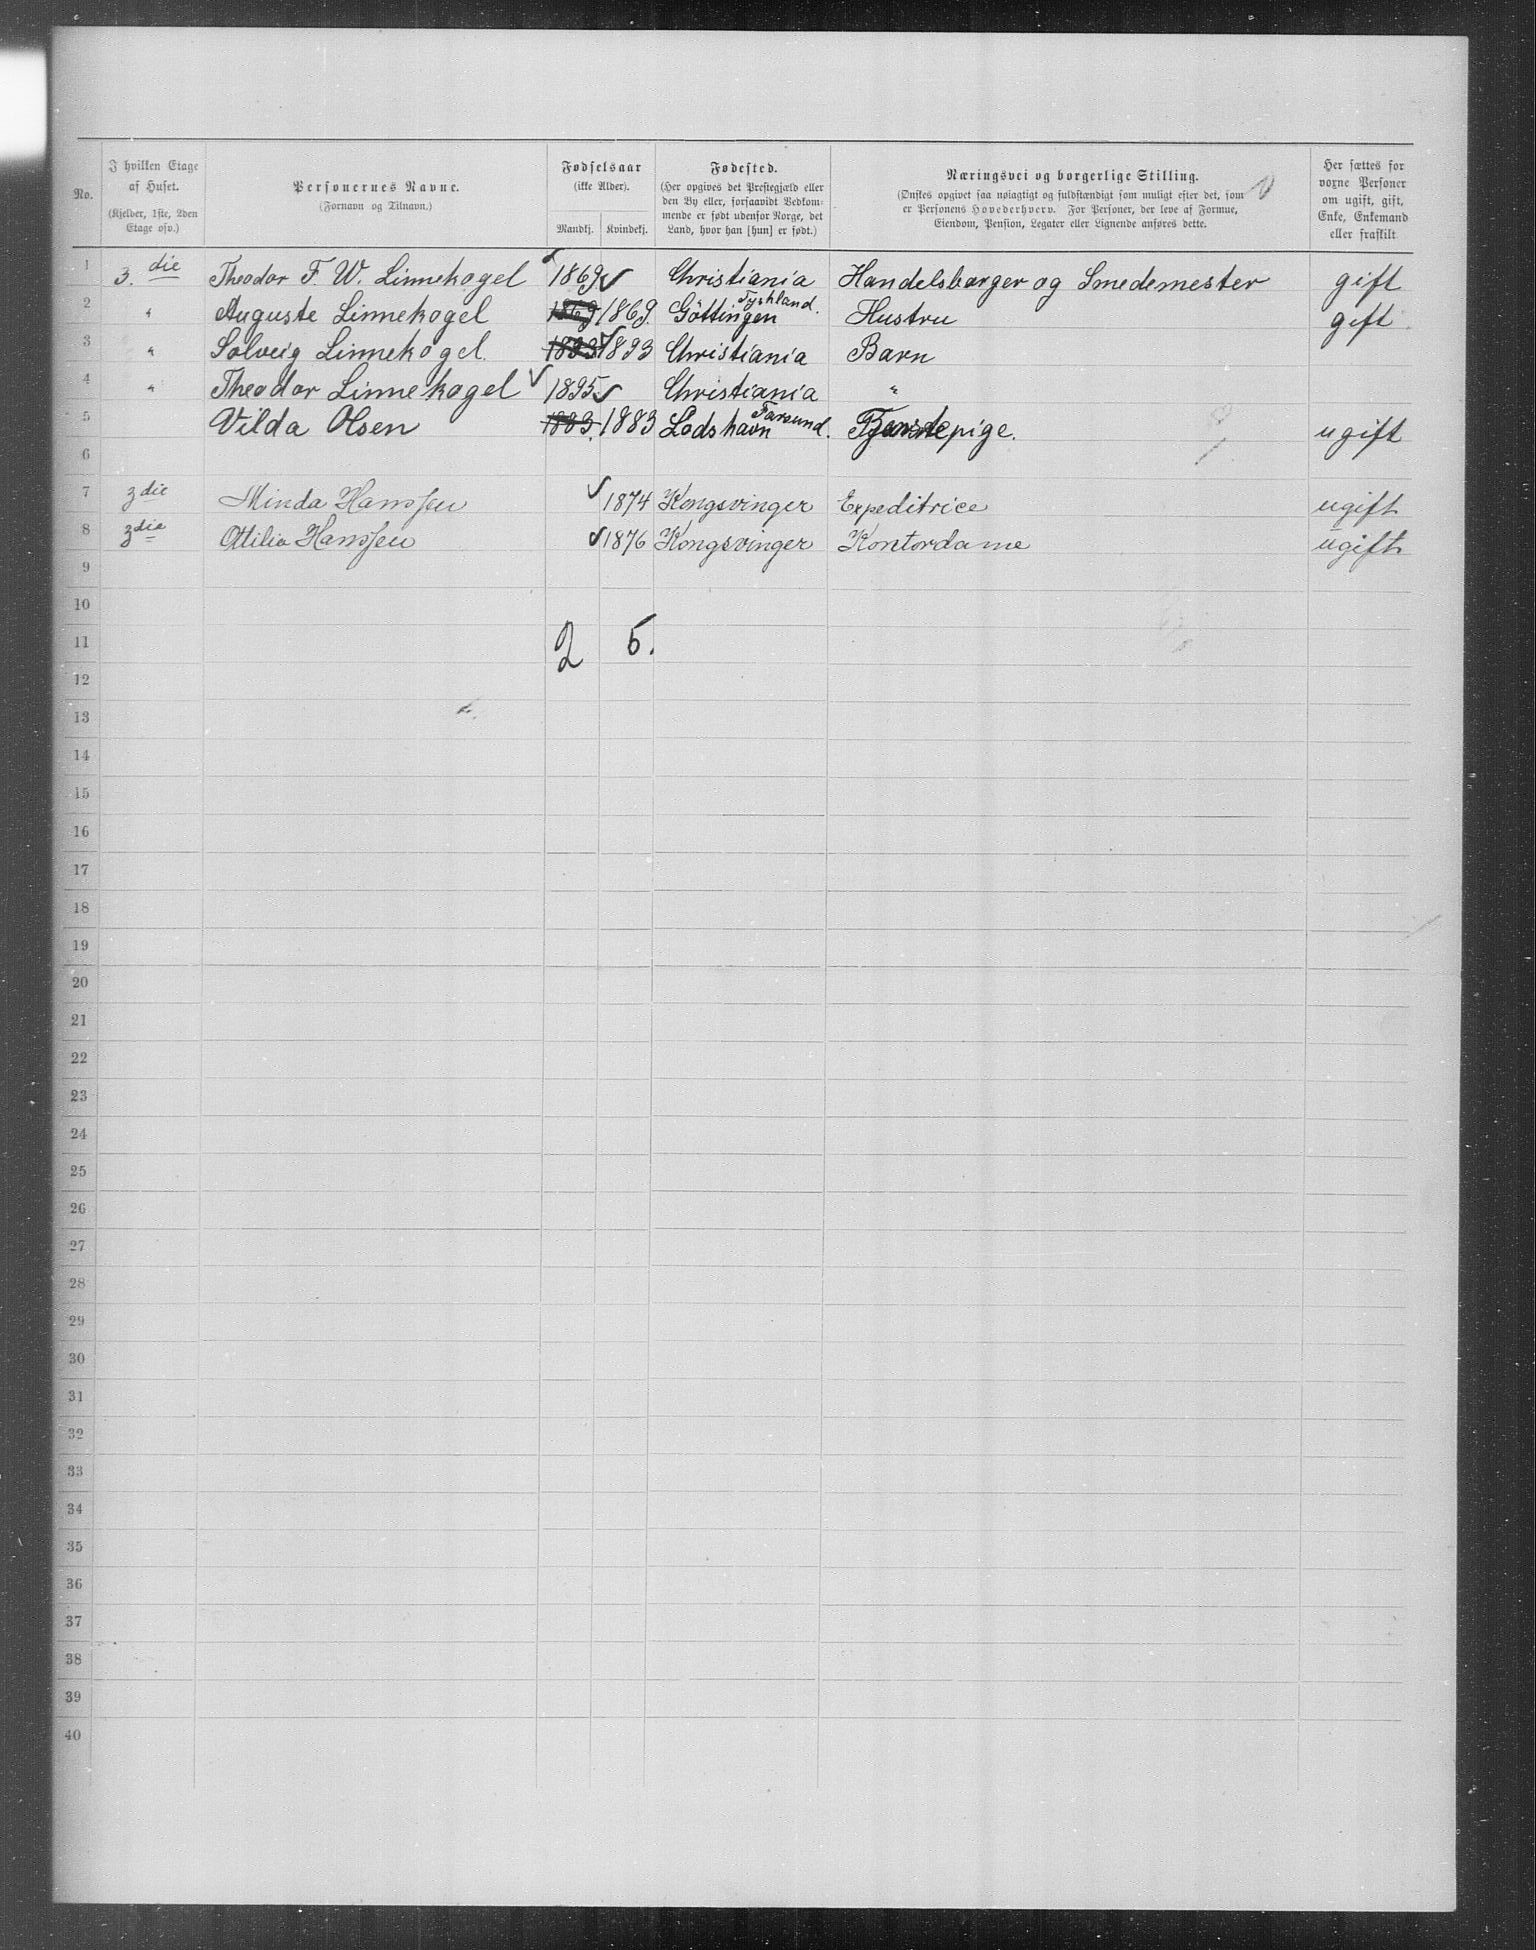 No.
I hvilken Etage af Huset.
(Kjelder, 1ste, 2den Etage osv.)
Personernes Navne.
(Fornavn og Tilnavn.)
Fødselsaar
(ikke Alder).
Mandkj. Kvindekj.
Fødested.
(Her opgives det Prestegjæld eller
den By eller, forsaavidt Vedkom-
mende er født udenfor Norge, det
Land, hvor han [hun] er født.)
Næringsvei og borgerlige Stilling.
(Ønskes opgivet saa nøiagtigt og fuldstændigt som muligt efter det, som
er Personens Hovederhverv. For Personer, der leve af Formue,
Eiendom, Pension, Legater eller Lignende anføres dette.
Her sættes for
voxne Personer
om ugift, gift,
Enke, Enkemand
eller fraskilt
1 3. die Theodor F. W. Linnekogel 1869 Christiania Handelsborger og Smedemester gift
2 " Auguste Linnekogel 1869 1869. Göttingen Tyskland. Hustru gift.
3 " Solveig Linnekogel. 1893 1893 Christiania Barn
4 " Theodor Linnekogel 1895 Christiania "
5 Vilda Olsen 1883. 1883 Lodshavn Farsund. Tjenstepige. ugift
6
7 3die Minda Hanssen 1874 Kongsvinger Expeditrice ugift
8 3die Ottilia Hanssen 1876 Kongsvinger Kontordame ugift
9
10
11 2 5.
12
13
14
15
16
17
18
19
20
21
22
23
24
25
26
27
28
29
30
31
32
33
34
35
36
37
38
39
40